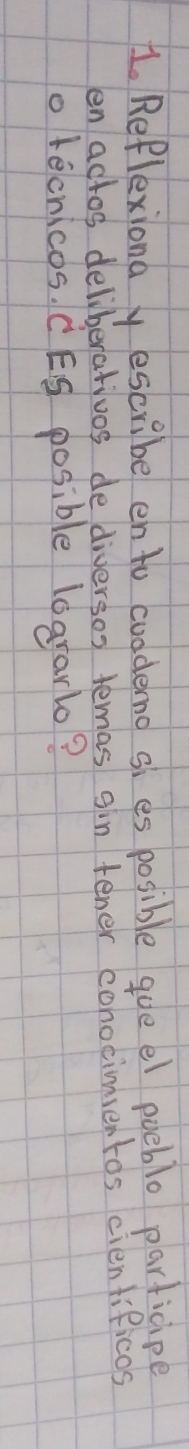 1. Reflexiona y escribe en tu cuaderno si es posible que el pueblo participe
en actos deliberativos de diversos temas sin tener conocimientos científicos
o técnicos. ¿Es posible lograrlo?